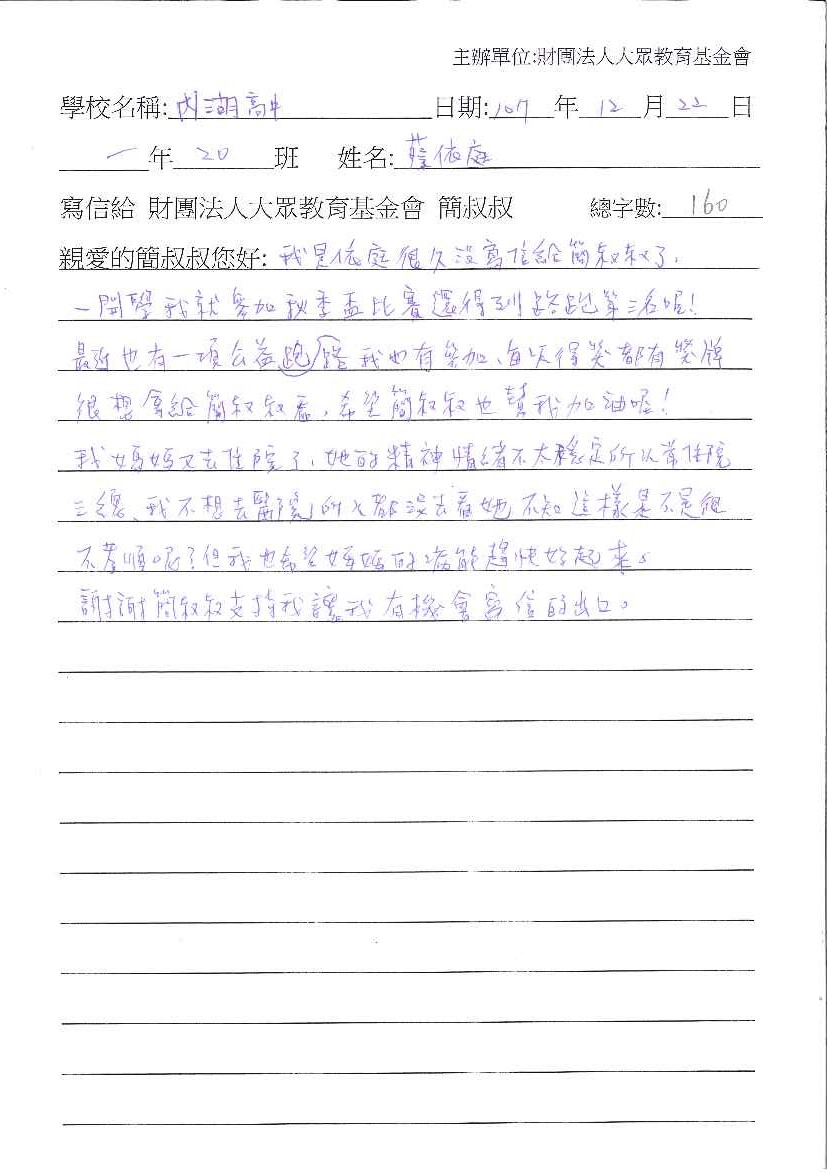 主辦單位:財團法人大眾教育基金會
學校名稱: 內湖高中 日期: 107 年 12 月 22 日
一 年 20 班 姓名: 蔡依庭
寫信給 財團法人大眾教育基金會 簡叔叔 總字數: 160
親愛的簡叔叔您好: 我是依庭很久沒寫信給簡叔叔了，
一開學我就參加秋季盃比賽還得到路跑第三名呢！
最近也有一項公益跑路我也有參加、每次得獎都有獎牌
很想拿給簡叔叔看，希望簡叔叔也幫我加油喔！
我媽媽又去住院了，她的精神情緒不太穩定所以常住院
三總、我不想去醫院所以都沒去看她不知這樣是不是很
不孝順呢？但我也希望媽媽的病能趕快好起來。
謝謝簡叔叔支持我讓我有機會寫信的出口。